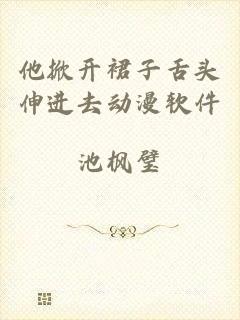 他掀开裙子舌头
伸进去动漫软件
池枫璧